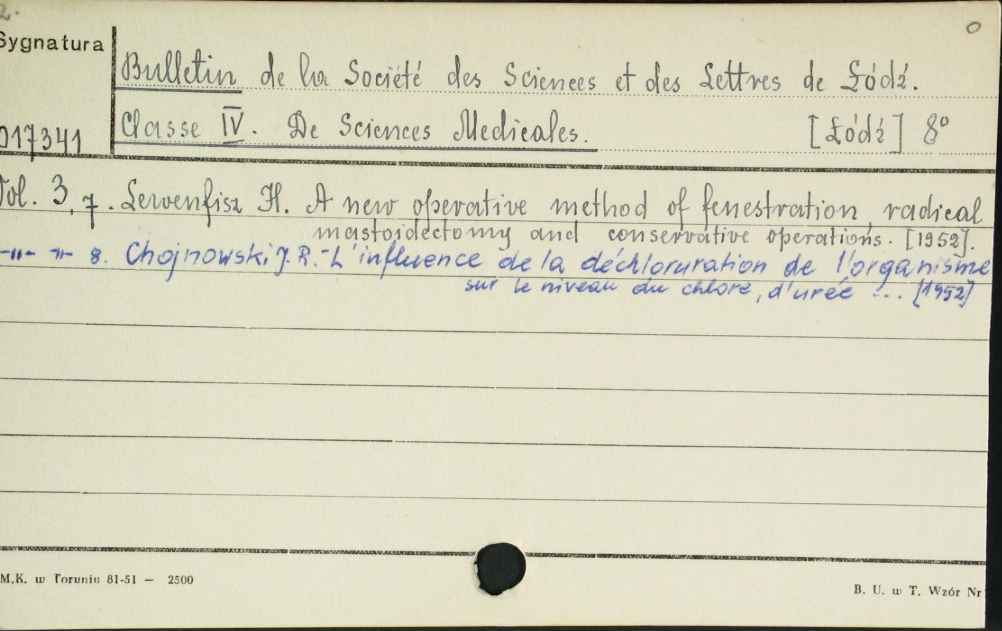 2.
Sygnatura
0
Bulletin de la Société des Sciences et des Lettres de Łódź.
Classe IV. De Sciences Medicales. [Łódź] 8°
017341
Vol. 3, 7. Lewenfisz H. A new operative method of fenestration, radical
mastoidectomy and conservative operations. [1952].
-"- -"- 8. Chojnowski J. R. - L'influence de la déchloruration de l'organisme
sur le niveau du chlore, d'urée ... [1952]
M.K. w Toruniu 81-51 — 2500
B. U. w T. Wzór Nr